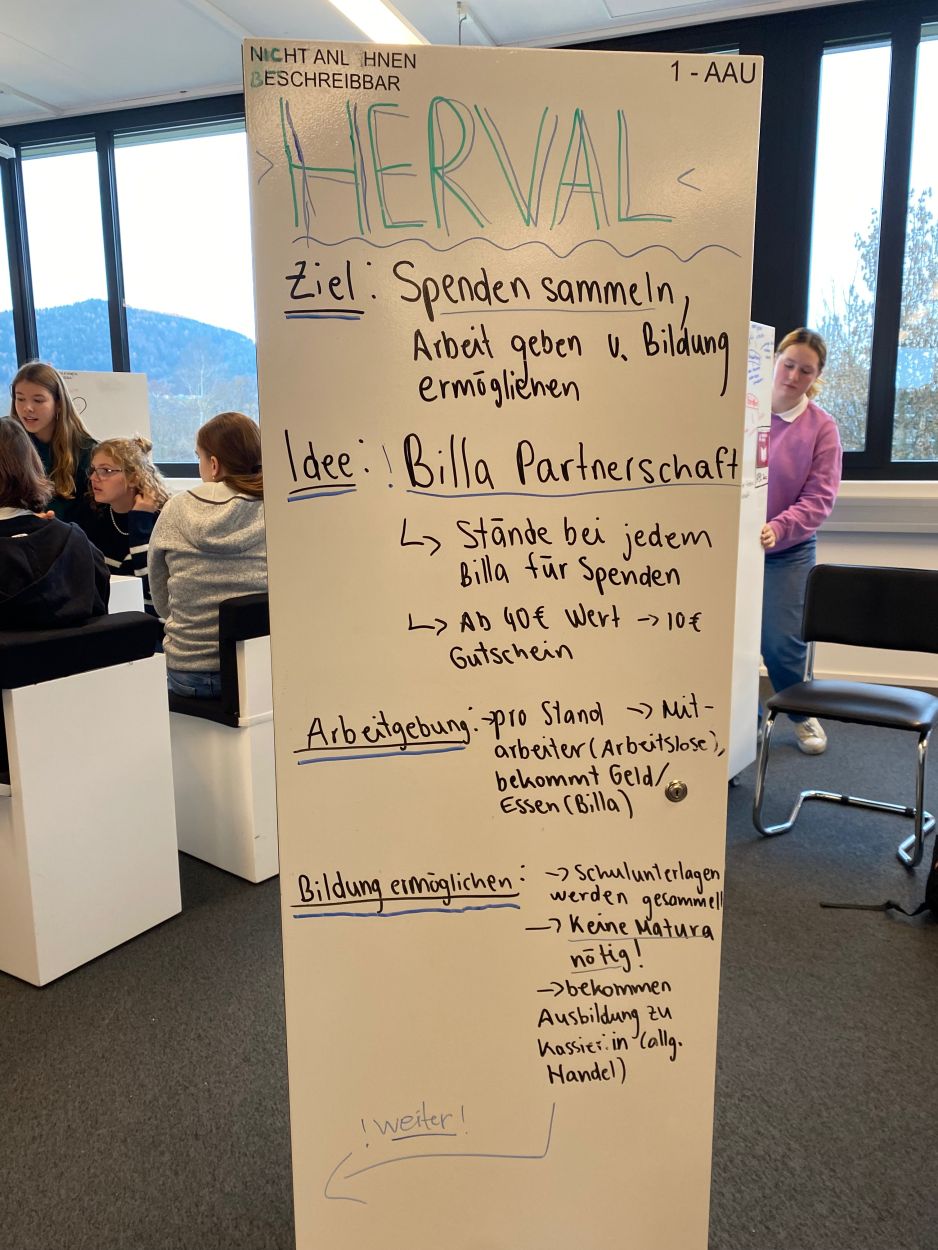 NICHT ANL HNEN
BESCHREIBBAR
1 - AAU
> HERVAL <
Ziel: Spenden sammeln,
Arbeit geben u. Bildung
ermöglichen
Idee: ! Billa Partnerschaft
↳ Stände bei jedem
Billa für Spenden
↳ Ab 40€ Wert → 10€
Gutschein
Arbeitgebung: → pro Stand → Mit-
arbeiter (Arbeitslose),
bekommt Geld/
Essen (Billa)
Bildung ermöglichen: → Schulunterlagen
werden gesammelt
→ Keine Matura
nötig!
→ bekommen
Ausbildung zu
Kassier:in (allg.
Handel)
! weiter !